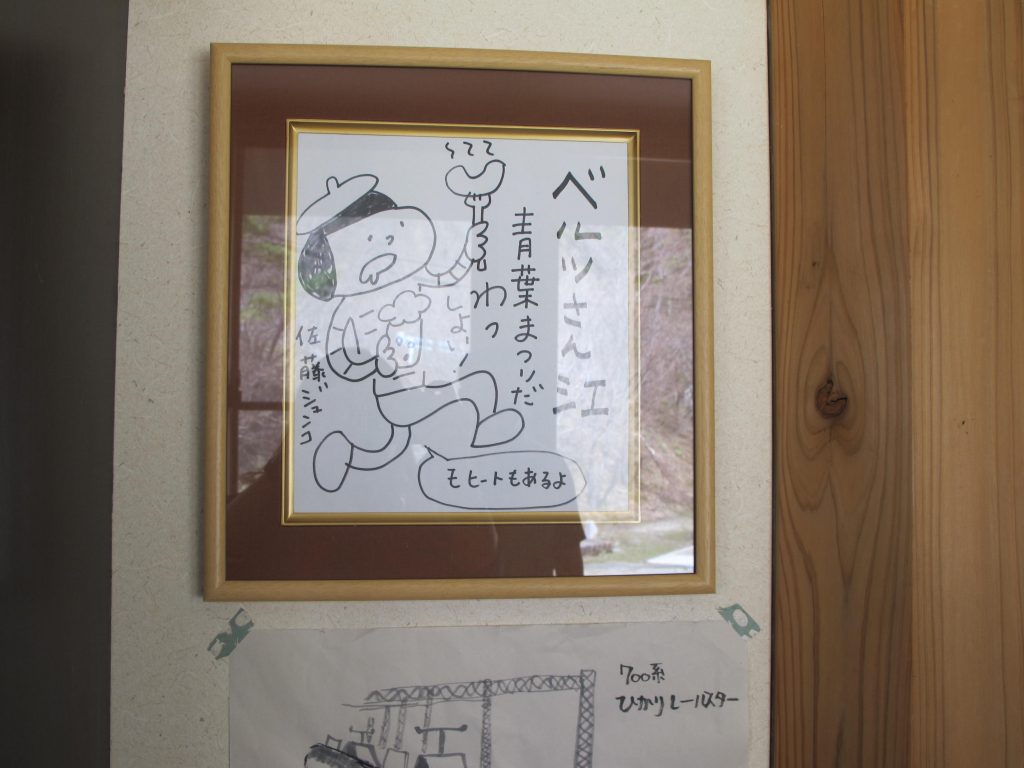 ベルツさん江
青葉まつりだ
わっ
しょい!
佐藤ジュンコ
モヒートもあるよ
700系
ひかりレールスター